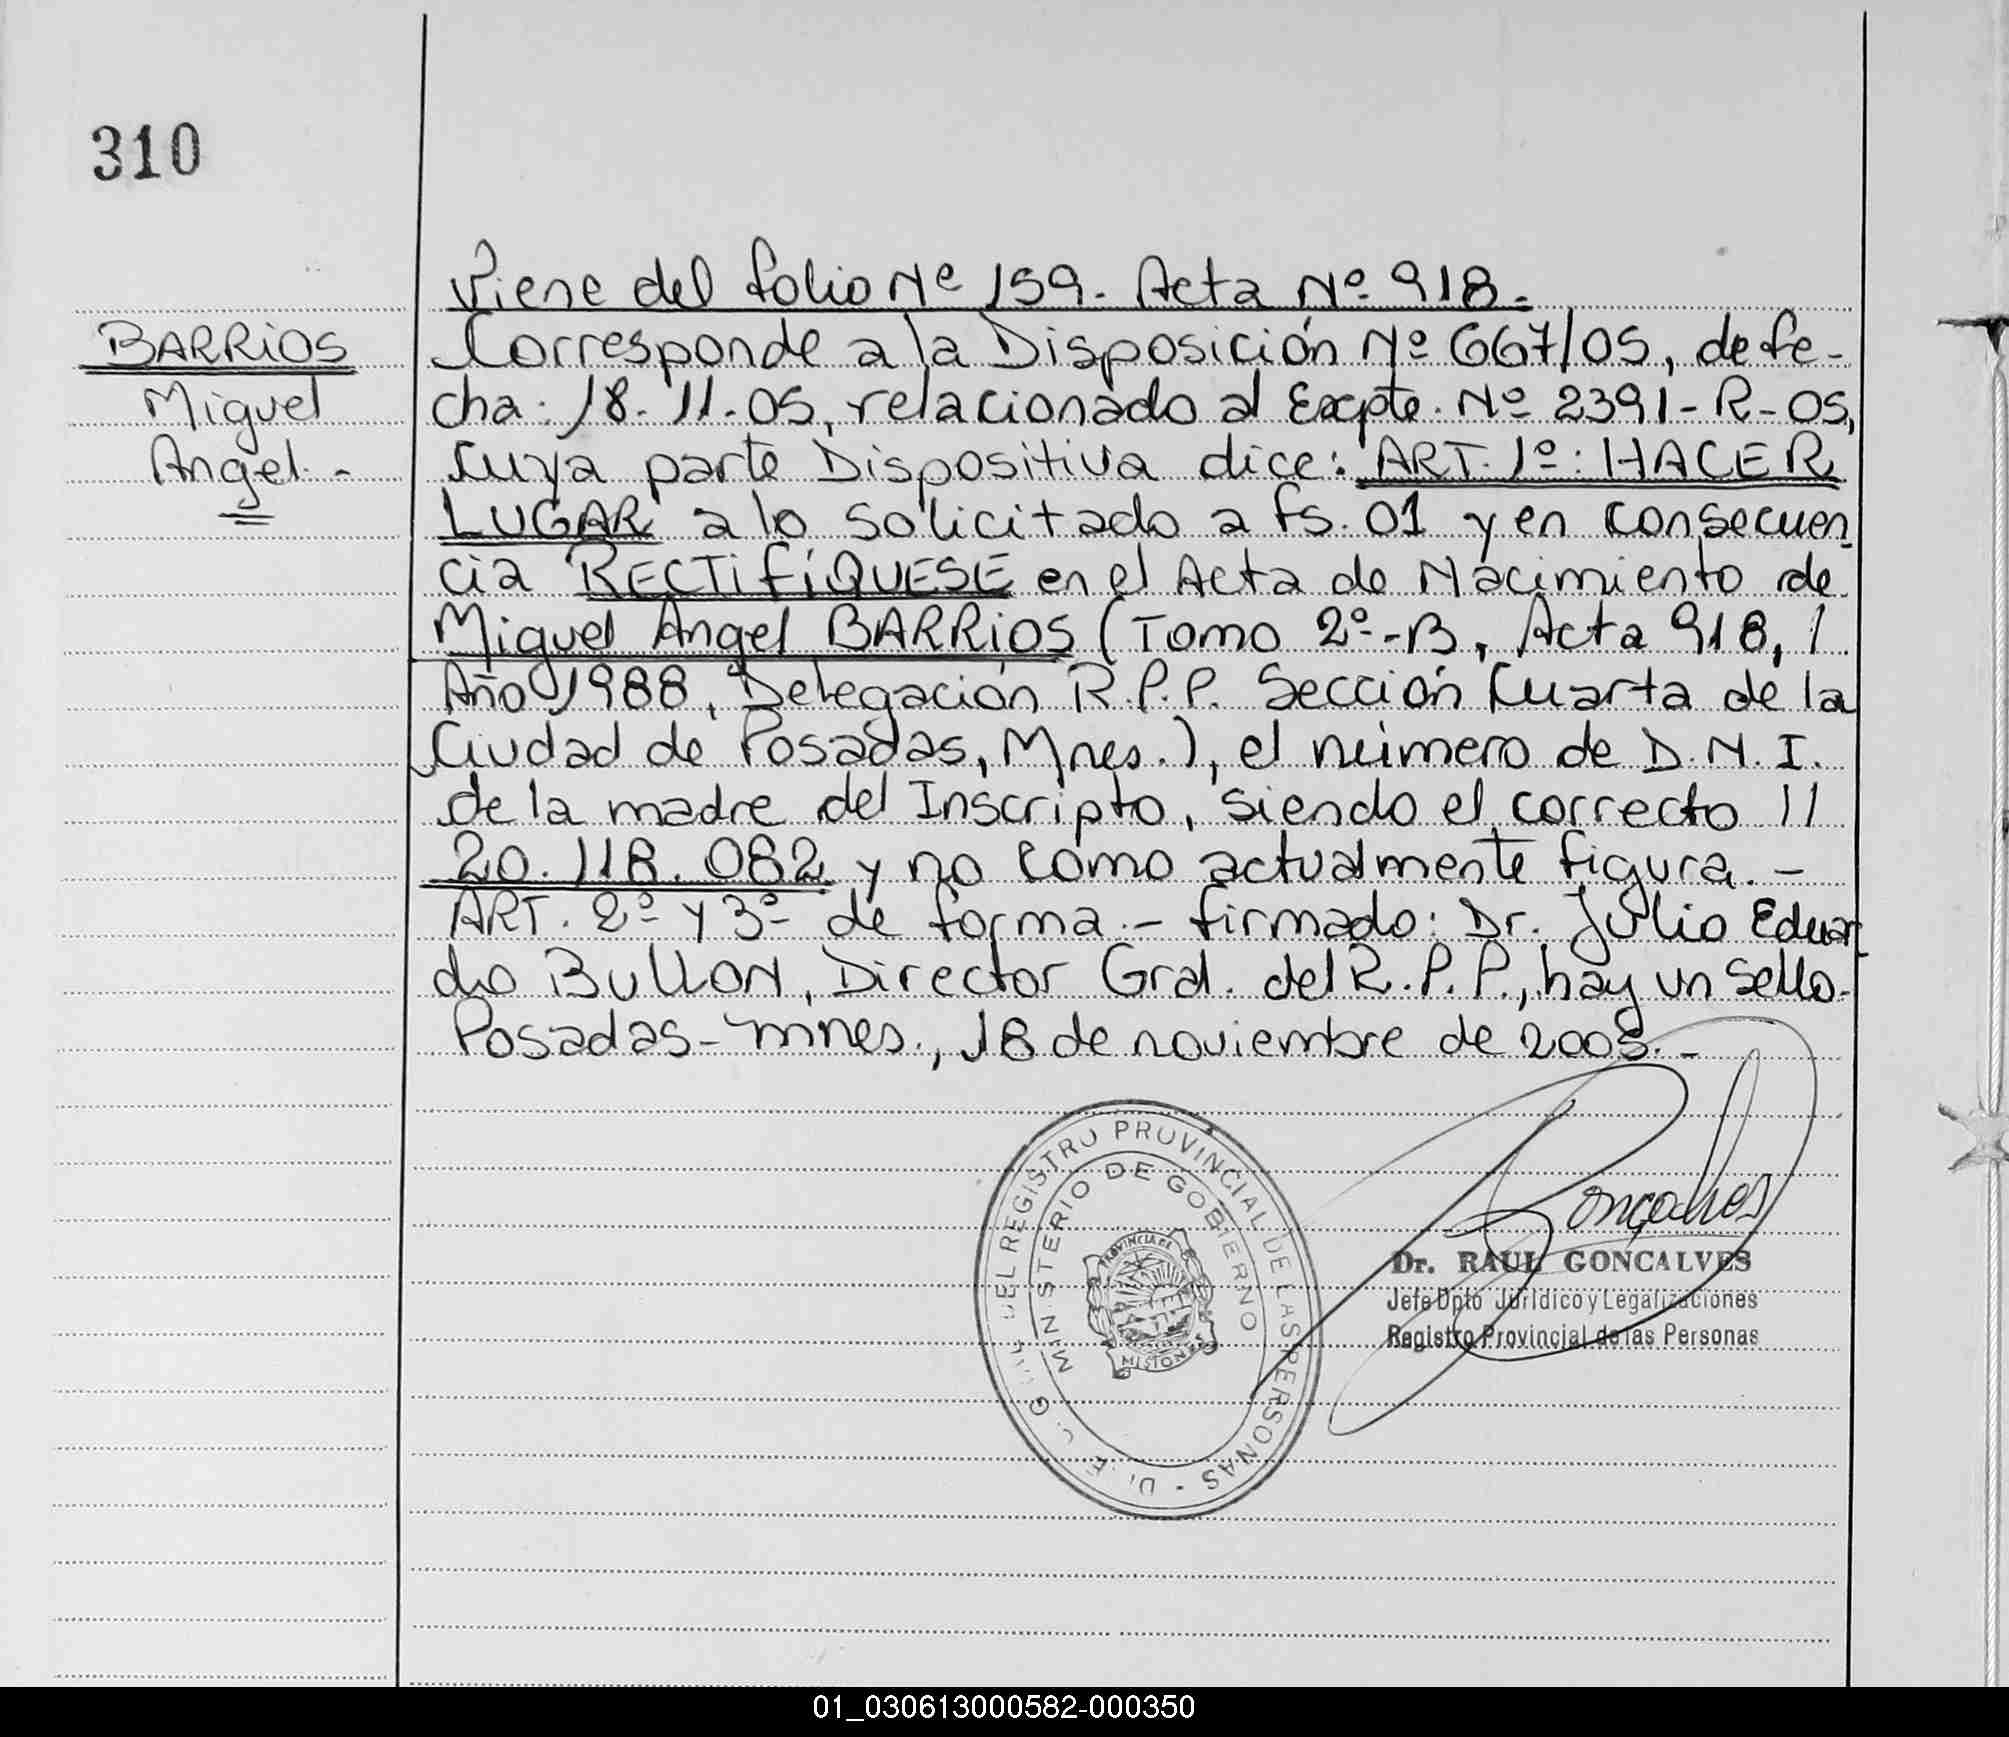 310
BARRiOS
Miguel
Angel.-
Viene del folio Nº 159.- Acta Nº 918.-
Corresponde a la Disposición Nº 667/05, de fe-
cha: 18.11.05, relacionado al Expte. Nº 2391-R-05,
cuya parte Dispositiva dice: ART. 1º: HACER
LUGAR a lo solicitado a fs. 01 y en consecuen
cia RECTIFÍQUESE en el Acta de Nacimiento de
Miguel Angel BARRiOS (Tomo 2º-B, Acta 918, /
Año 1988, Delegación R.P.P. Sección Cuarta de la
Ciudad de Posadas, Mnes.), el número de D.N.I.
de la madre del Inscripto, siendo el correcto //
20.118.082 y no como actualmente figura.-
ART. 2º y 3º de forma.- firmado: Dr. Julio Eduar
do BULLON, Director Gral. del R.P.P., hay un sello.-
Posadas-mnes., 18 de noviembre de 2005.-
DEL REGISTRO PROVINCIAL DE LAS PERSONAS
MINISTERIO DE GOBIERNO
PROVINCIA DE
MISIONES
Gonçalves
Dr. RAUL GONCALVES
Jefe Dpto Jurídico y Legalizaciones
Registro Provincial de las Personas
01_030613000582-000350